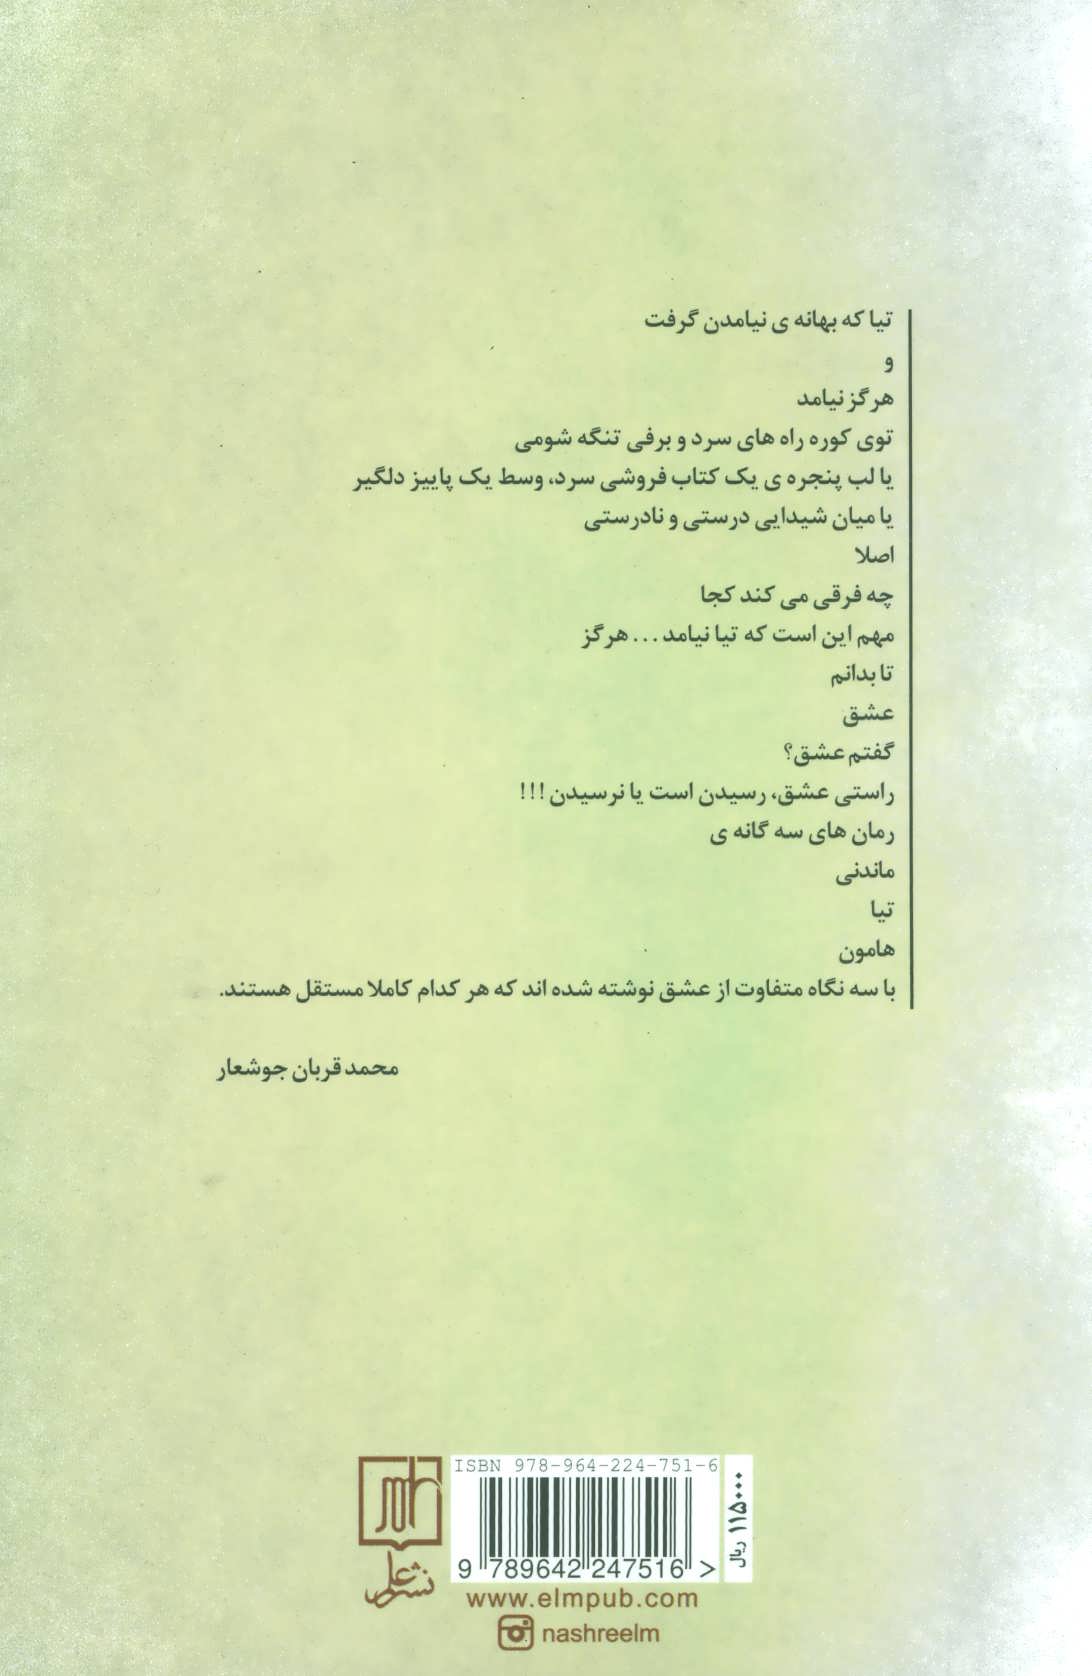 تیا که بهانه ی نیامدن گرفت
و
هرگز نیامد
توی کوره راه های سرد و برفی تنگه شومی
یا لب پنجره ی یک کتاب فروشی سرد، وسط یک پاییز دلگیر
یا میان شیدایی درستی و نادرستی
اصلا
چه فرقی می کند کجا
مهم این است که تیا نیامد... هرگز
تا بدانم
عشق
گفتم عشق؟
راستی عشق، رسیدن است یا نرسیدن!!!
رمان های سه گانه ی
ماندنی
تیا
هامون
با سه نگاه متفاوت از عشق نوشته شده اند که هر کدام کاملا مستقل هستند.
محمد قربان جوشعار
ISBN 978-964-224-751-6
9 789642 247516 >
۱۱۵۰۰۰ ریال
نشر علم
www.elmpub.com
nashreelm